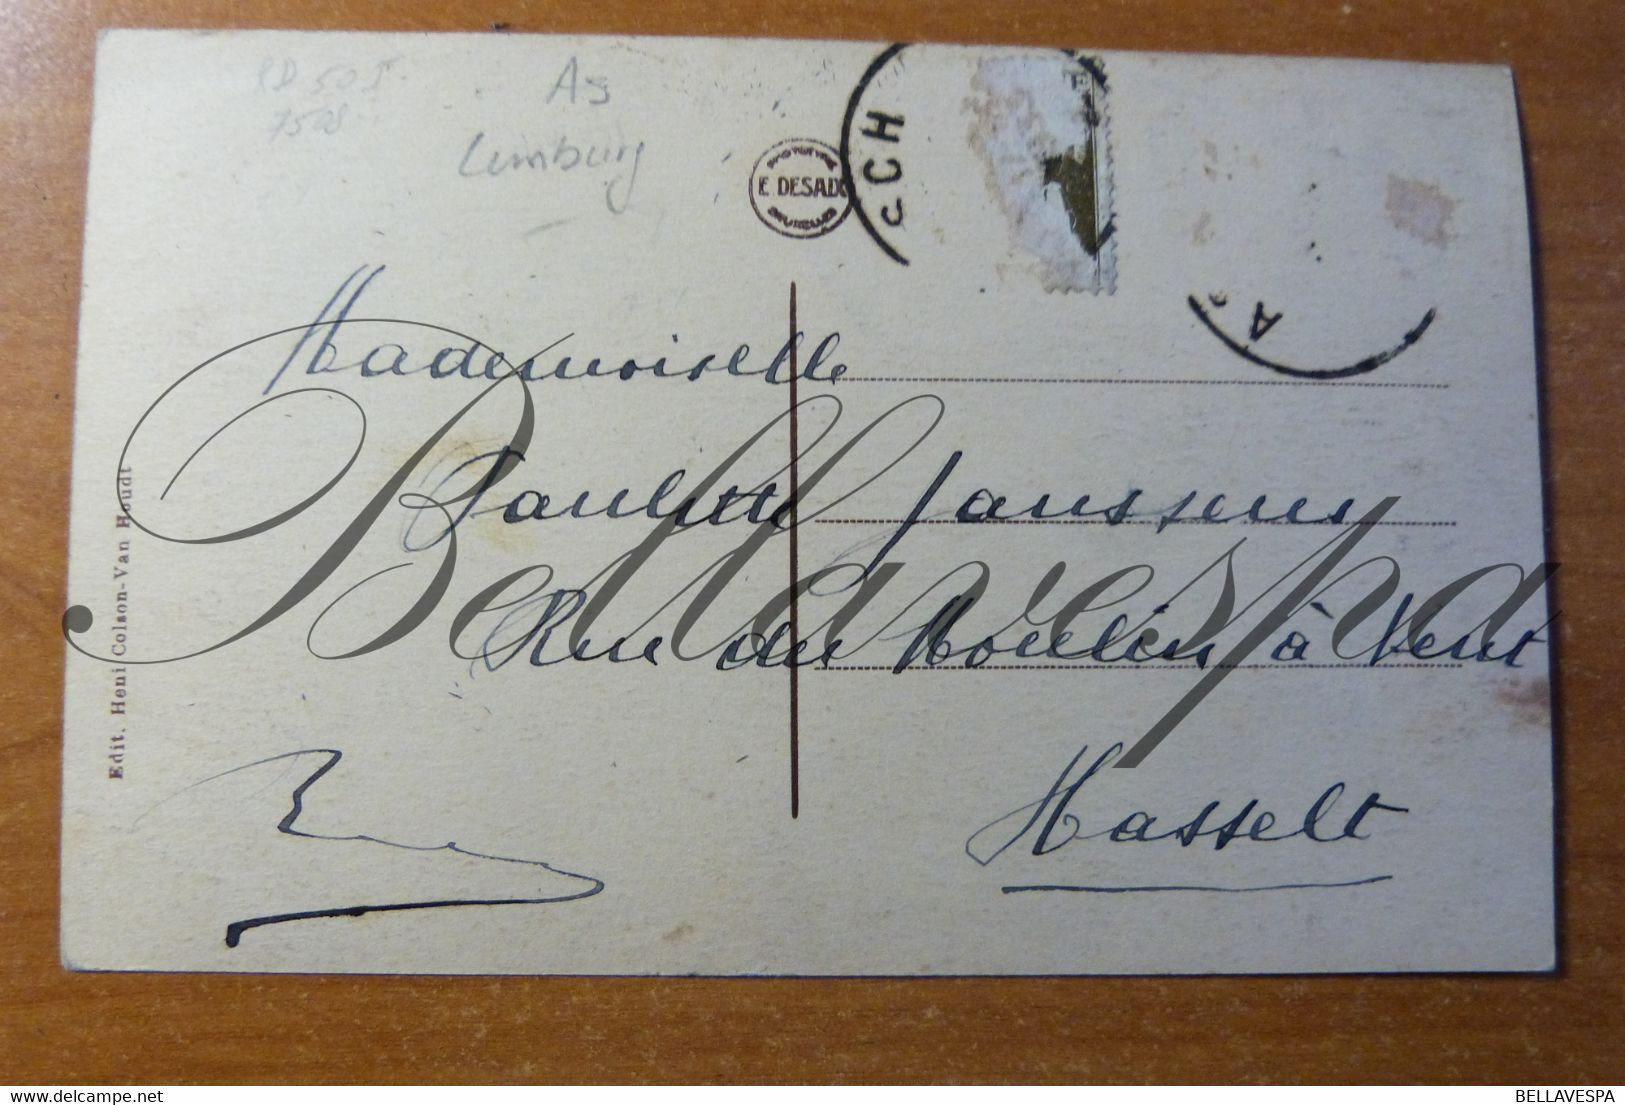 As
Limburg
PHOTOTYPIE
E. DESAIX
BRUXELLES
SCH
A
Mademoiselle
Paulette Janssens
Rue du Moulin à Vent
Hasselt
Edit. Heni Colson-Van Houdt
Bellavespa
BELLAVESPA